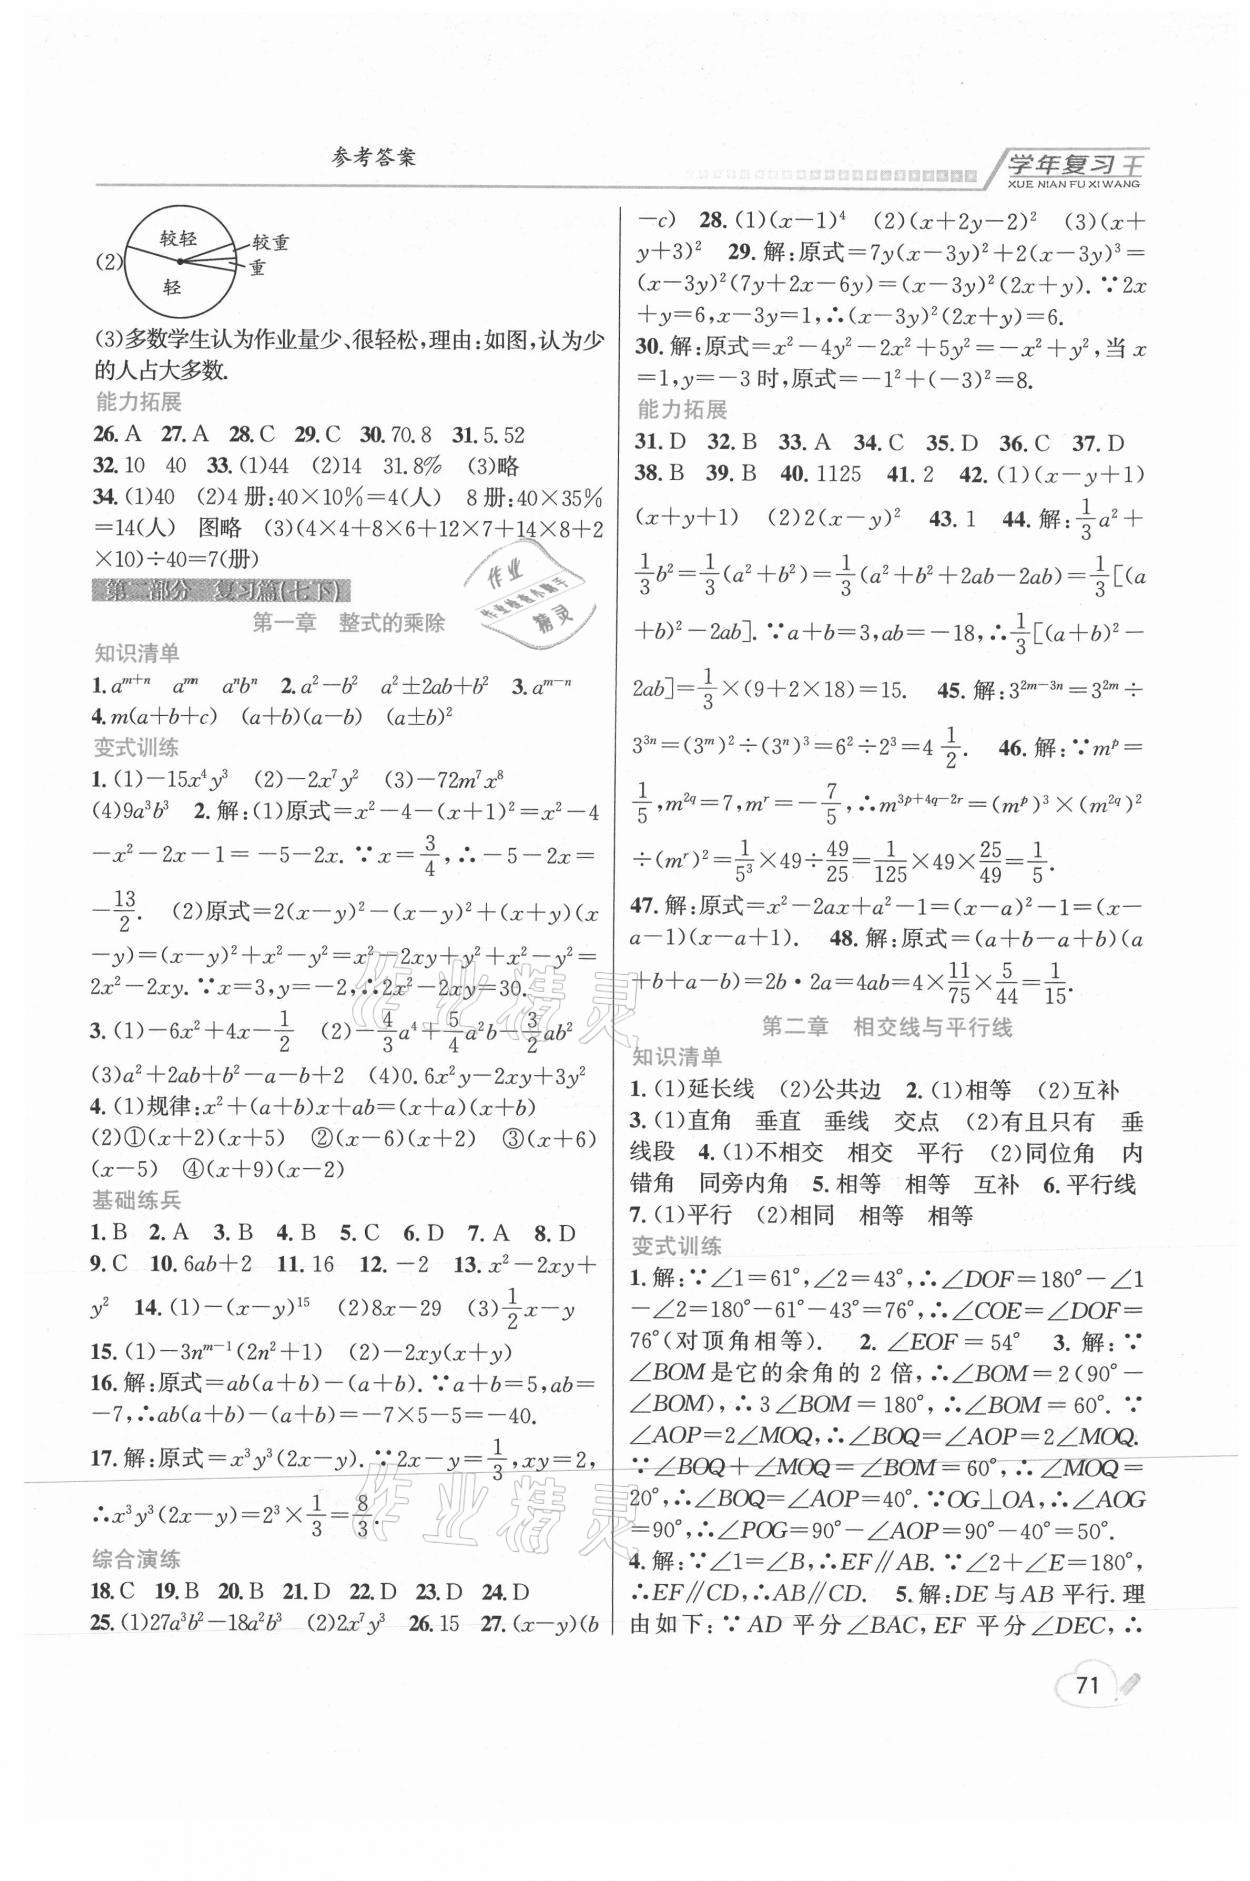 参考答案
学年复习王
XUE NIAN FU XI WANG
(2)
较轻
较重
重
轻
(3)多数学生认为作业量少、很轻松,理由:如图,认为少
的人占大多数.
能力拓展
26. A 27. A 28. C 29. C 30. 70.8 31. 5.52
32. 10 40 33. (1)44 (2)14 31.8% (3)略
34. (1)40 (2)4册:40×10%=4(人) 8册:40×35%
=14(人) 图略 (3)(4×4+8×6+12×7+14×8+2
×10)÷40=7(册)
第二部分 复习篇(七下)
第一章 整式的乘除
知识清单
1. a^{m+n} a^{mn} a^n b^n 2. a²-b² a²±2ab+b² 3. a^{m-n}
4. m(a+b+c) (a+b)(a-b) (a±b)²
变式训练
1. (1)-15x⁴y³ (2)-2x⁷y² (3)-72m⁷x⁸
(4)9a³b³ 2. 解:(1)原式=x²-4-(x+1)²=x²-4
-x²-2x-1=-5-2x. ∵x=3/4,∴-5-2x=
-13/2. (2)原式=2(x-y)²-(x-y)²+(x+y)(x
-y)=(x-y)²+x²-y²=x²-2xy+y²+x²-y²=
2x²-2xy. ∵x=3,y=-2,∴2x²-2xy=30.
3. (1)-6x²+4x-1/2 (2)-4/3a⁴+5/4a²b-3/2ab²
(3)a²+2ab+b²-a-b+2 (4)0.6x²y-2xy+3y²
4. (1)规律:x²+(a+b)x+ab=(x+a)(x+b)
(2)①(x+2)(x+5) ②(x-6)(x+2) ③(x+6)
(x-5) ④(x+9)(x-2)
基础练兵
1. B 2. A 3. B 4. B 5. C 6. D 7. A 8. D
9. C 10. 6ab+2 11. 16 12. -2 13. x²-2xy+
y² 14. (1)-(x-y)¹⁵ (2)8x-29 (3)1/2x-y
15. (1)-3n^{m-1}(2n²+1) (2)-2xy(x+y)
16. 解:原式=ab(a+b)-(a+b). ∵a+b=5,ab=
-7,∴ab(a+b)-(a+b)=-7×5-5=-40.
17. 解:原式=x³y³(2x-y). ∵2x-y=1/3,xy=2,
∴x³y³(2x-y)=2³×1/3=8/3.
综合演练
18. C 19. B 20. B 21. D 22. D 23. D 24. D
25. (1)27a³b²-18a²b³ (2)2x⁷y³ 26. 15 27. (x-y)(b
-c) 28. (1)(x-1)⁴ (2)(x+2y-2)² (3)(x+
y+3)² 29. 解:原式=7y(x-3y)²+2(x-3y)³=
(x-3y)²(7y+2x-6y)=(x-3y)²(2x+y). ∵2x
+y=6,x-3y=1,∴(x-3y)²(2x+y)=6.
30. 解:原式=x²-4y²-2x²+5y²=-x²+y²,当x
=1,y=-3时,原式=-1²+(-3)²=8.
能力拓展
31. D 32. B 33. A 34. C 35. D 36. C 37. D
38. B 39. B 40. 1125 41. 2 42. (1)(x-y+1)
(x+y+1) (2)2(x-y)² 43. 1 44. 解:1/3a²+
1/3b²=1/3(a²+b²)=1/3(a²+b²+2ab-2ab)=1/3[(a
+b)²-2ab]. ∵a+b=3,ab=-18,∴1/3[(a+b)²-
2ab]=1/3×(9+2×18)=15. 45. 解:3^{2m-3n}=3^{2m}÷
3^{3n}=(3^m)²÷(3^n)³=6²÷2³=4 1/2. 46. 解:∵m^p=
1/5,m^{2q}=7,m^r=-7/5,∴m^{3p+4q-2r}=(m^p)³×(m^{2q})²
÷(m^r)²=1/5³×49÷49/25=1/125×49×25/49=1/5.
47. 解:原式=x²-2ax+a²-1=(x-a)²-1=(x-
a-1)(x-a+1). 48. 解:原式=(a+b-a+b)(a
+b+a-b)=2b·2a=4ab=4×11/75×5/44=1/15.
第二章 相交线与平行线
知识清单
1. (1)延长线 (2)公共边 2. (1)相等 (2)互补
3. (1)直角 垂直 垂线 交点 (2)有且只有 垂
线段 4. (1)不相交 相交 平行 (2)同位角 内
错角 同旁内角 5. 相等 相等 互补 6. 平行线
7. (1)平行 (2)相同 相等 相等
变式训练
1. 解:∵∠1=61°,∠2=43°,∴∠DOF=180°-∠1
-∠2=180°-61°-43°=76°,∴∠COE=∠DOF=
76°(对顶角相等). 2. ∠EOF=54° 3. 解:∵
∠BOM是它的余角的2倍,∴∠BOM=2(90°-
∠BOM),∴3∠BOM=180°,∴∠BOM=60°. ∵
∠AOP=2∠MOQ,∴∠BOQ=∠AOP=2∠MOQ.
∵∠BOQ+∠MOQ=∠BOM=60°,∴∠MOQ=
20°,∴∠BOQ=∠AOP=40°. ∵OG⊥OA,∴∠AOG
=90°,∴∠POG=90°-∠AOP=90°-40°=50°.
4. 解:∵∠1=∠B,∴EF∥AB. ∵∠2+∠E=180°,
∴EF∥CD,∴AB∥CD. 5. 解:DE与AB平行. 理
由如下:∵AD平分∠BAC,EF平分∠DEC,∴
71
作业
作业检查小助手
精灵
作业精灵
作业精灵